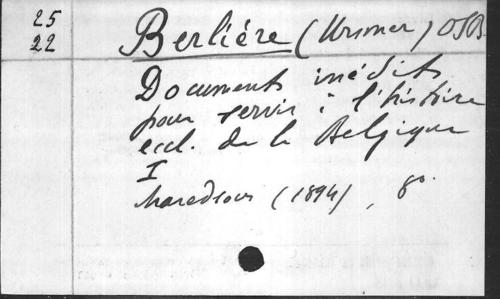 25
22
Berlière (Ursmer) OSB
Documents inédits
pour servir à l'histoire
eccl. de la Belgique
I
Maredsous (1894), 8°